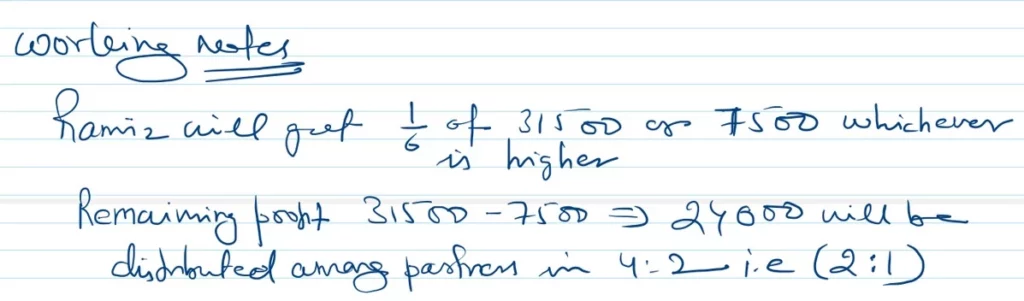 Working notes
Ramiz will get 1/6 of 31500 or 7500 whichever
is higher
Remaining profit 31500 - 7500 => 24000 will be
distributed among partners in 4:2 i.e (2:1)